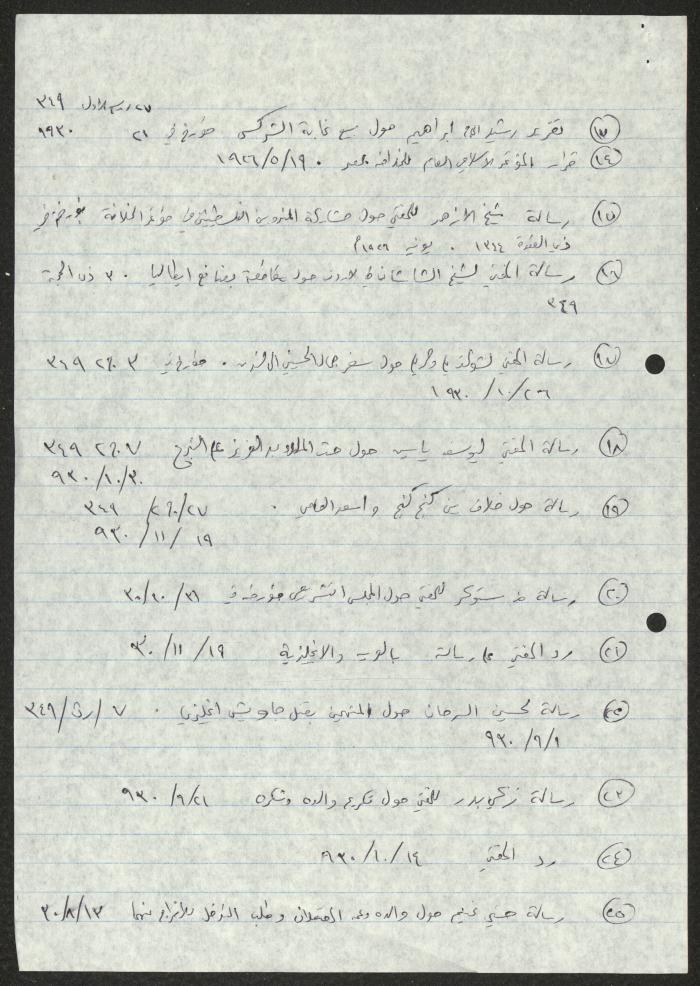 ٢٧ ربيع الاول ٣٤٩
١٣ تقرير رشيد الحاج ابراهيم حول بيع غابة الشركس مؤرخ في ٢١ ١٩٣٠
١٤ قرار المؤتمر الاسلامي العام للخلافة بمصر . ١٩٢٦/٥/١٩
١٥ رسالة شيخ الازهر للمفتي حول مشاركة المندوبين الفلسطينيين في مؤتمر الخلافة
ذي القعدة ١٣٤٤ . يونيه ١٩٢٦م
١٦ رسالة المفتي لشيخ حول مقاطعة بضائع ايطاليا . ٣ ذي الحجة
٣٤٩
١٧ رسالة المفتي لشوكت حول سفر جمال الحسيني الى لندن . مؤرخ في ٣ ج٢ ٣٤٩
١٩٣٠/١٠/٢٦
١٨ رسالة المفتي ليوسف ياسين حول حث الملك عبد العزيز على التبرع ٧ ج٢ ٣٤٩
٩٣٠/١٠/٣٠
١٩ رسالة حول خلاف بين كنج كنج و اسعد العاصي . ٢٧/ج٢/ ٣٤٩
١٩ /١١/ ٩٣٠
٢٠ رسالة من ستوكر للمفتي حول المجلس التشريعي مؤرخه في ٣١/١٠/٣٠
٢١ رد المفتي على رسالة بالعربية والانجليزية ١٩/١١/٣٠
رسالة تحسين السرحان حول المتهمين بقتل جاويش انجليزي . ٧/ر٢/٣٤٩
٩٣٠/٩/١
٢٣ رسالة زكي بدر للمفتي حول تكريم والده وشكره ٩٣٠/٩/٢١
٢٤ رد المفتي ٩٣٠/١٠/١٤
٢٥ رسالة حسني غنيم حول والده وعمه المعتقلان وطلب التدخل للافراج عنهما ٣٠/٨/١٣